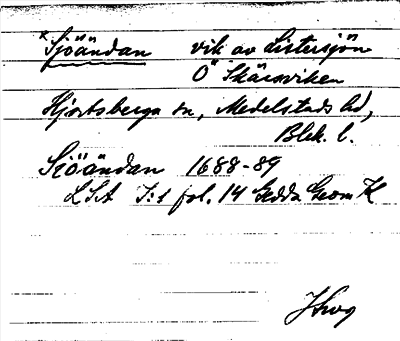 *Sjöändan vik av Listersjön
O Skärsviken
Hjortsberga sn, Medelstads hd,
Blek. l.
Siöändan 1688-89
LSA I:1 fol. 14 Gedda Geom K